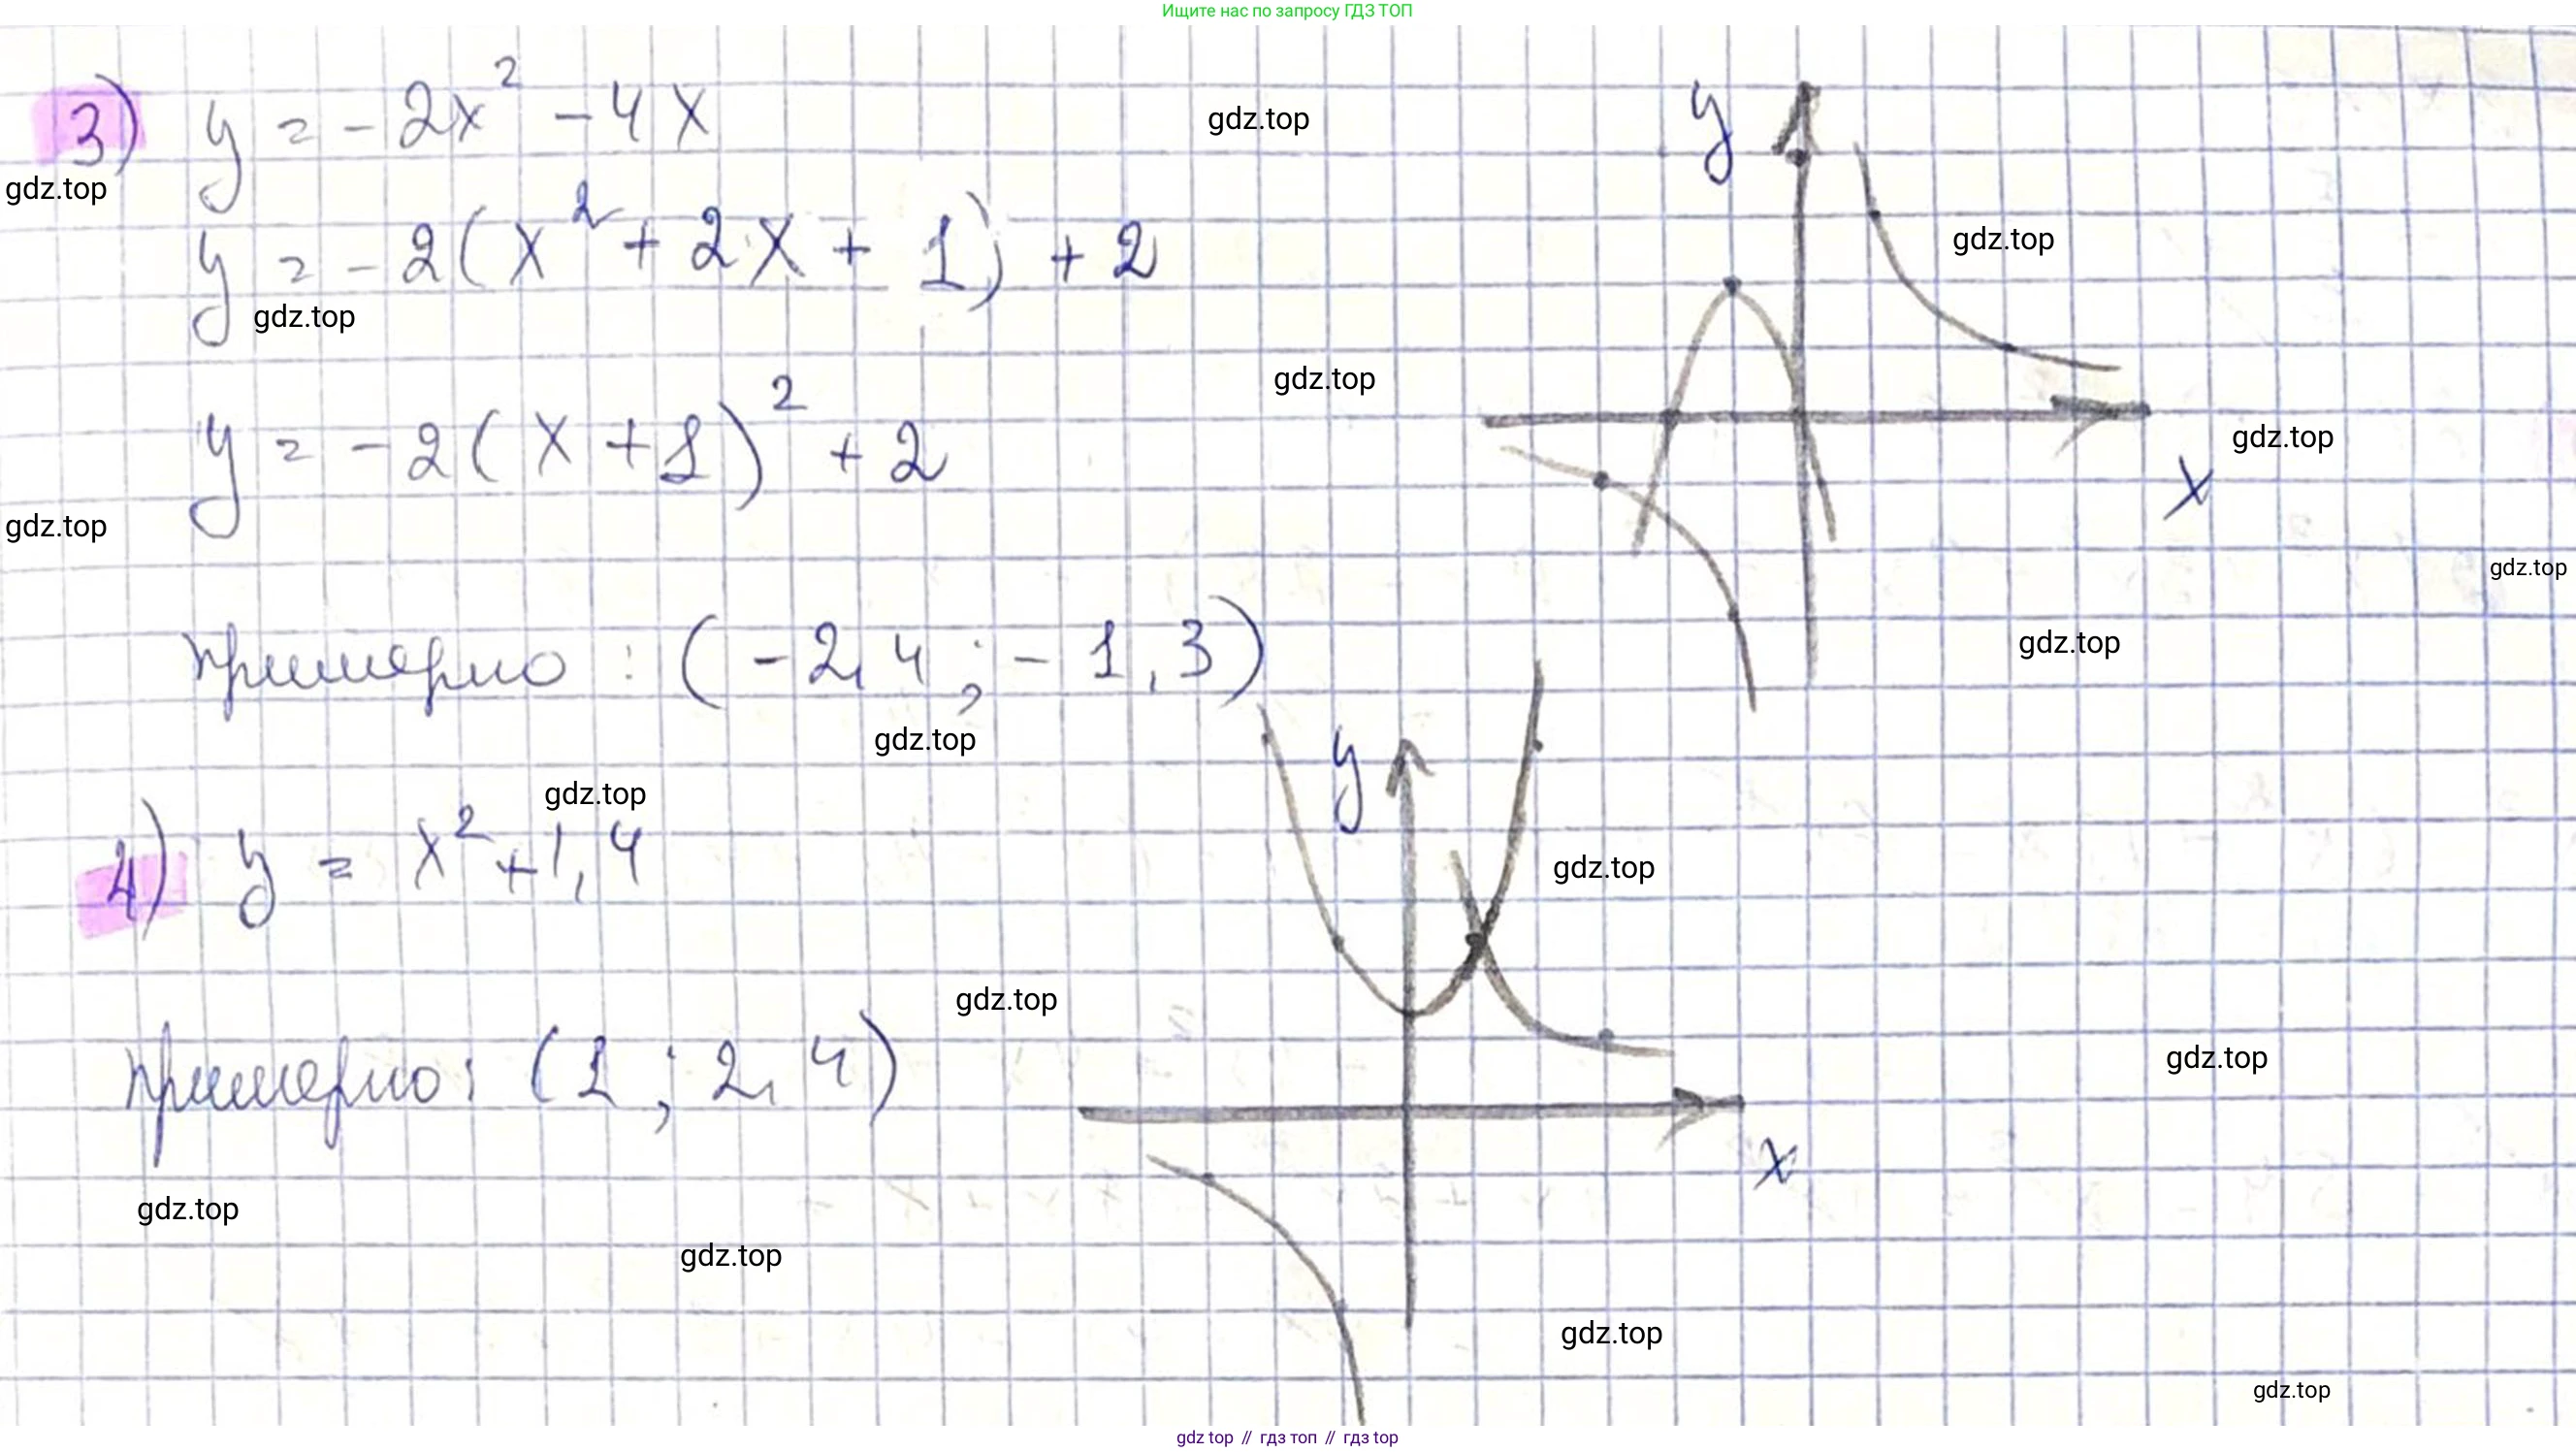 Ищите нас по запросу ГДЗ ТОП
3) y = -2x² - 4x
gdz.top
gdz.top
y = -2(x² + 2x + 1) + 2
gdz.top
gdz.top
y = -2(x + 1)² + 2
gdz.top
gdz.top
gdz.top
gdz.top
примерно : (-2,4 ; -1,3)
gdz.top
gdz.top
gdz.top
4) y = x² + 1,4
gdz.top
gdz.top
примерно: (1 ; 2,4)
gdz.top
gdz.top
gdz.top
gdz.top
gdz.top
y
x
y
x
gdz top // гдз топ // гдз top